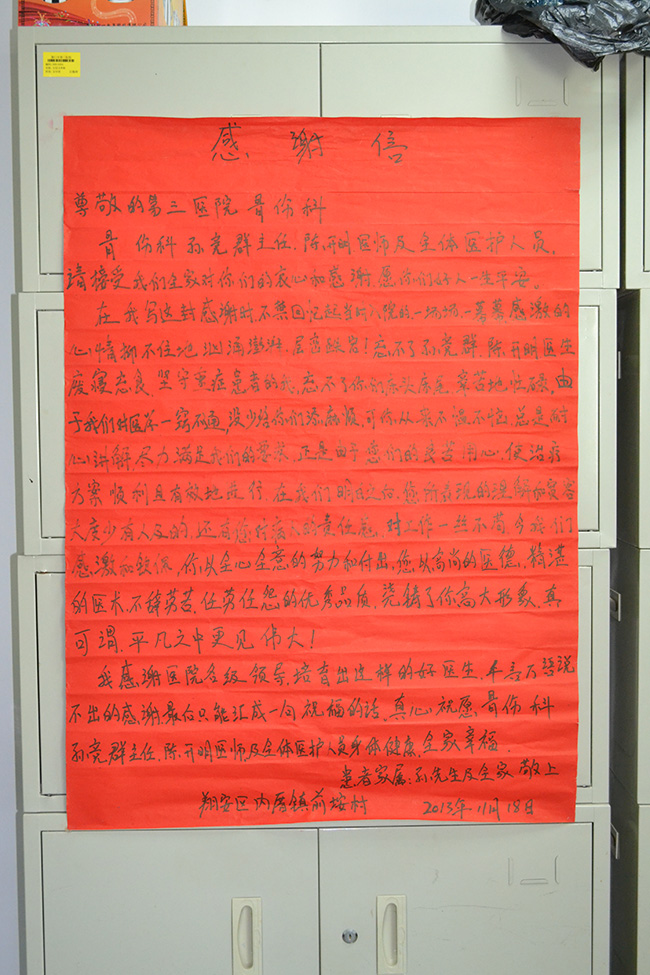 感谢信
尊敬的第三医院骨伤科
骨伤科孙亮群主任、陈开明医师及全体医护人员,
请接受我们全家对你们的衷心和感谢,愿你们好人一生平安。
在我写这封感谢时,不禁回记起当时入院的一场场,一幕幕感激的
心情抑不住地汹涌澎湃,忘不了孙亮群、陈开明医生
废寝忘食,坚守重症患者的我,忘不了你们辛苦地忙碌,由
于我们对医学一窍不通,没少给你们添麻烦,可你从来不愠不恼,总是耐
心讲解,尽力满足我们的要求,正是由于您们的良苦用心,使治疗
方案顺利且有效地进行,在我们明白之间,您所表现的理解和宽容
大度少有人及的,还有您对病人的责任感,对工作一丝不苟,令我们
感激和钦佩,你以全心全意的努力和付出,您以高尚的医德,精湛
的医术,不辞劳苦,任劳任怨的优秀品质,浇铸了你高大形象,真
可谓,平凡之中更见伟大!
我感谢医院各级领导,培育出这样的好医生,千言万语说
不出的感谢最后只能汇成一句祝福的话,真心祝愿骨伤科
孙亮群主任、陈开明医师及全体医护人员身体健康,全家幸福.
患者家属:孙先生及全家 敬上
翔安区内厝镇前垵村 2013年11月18日